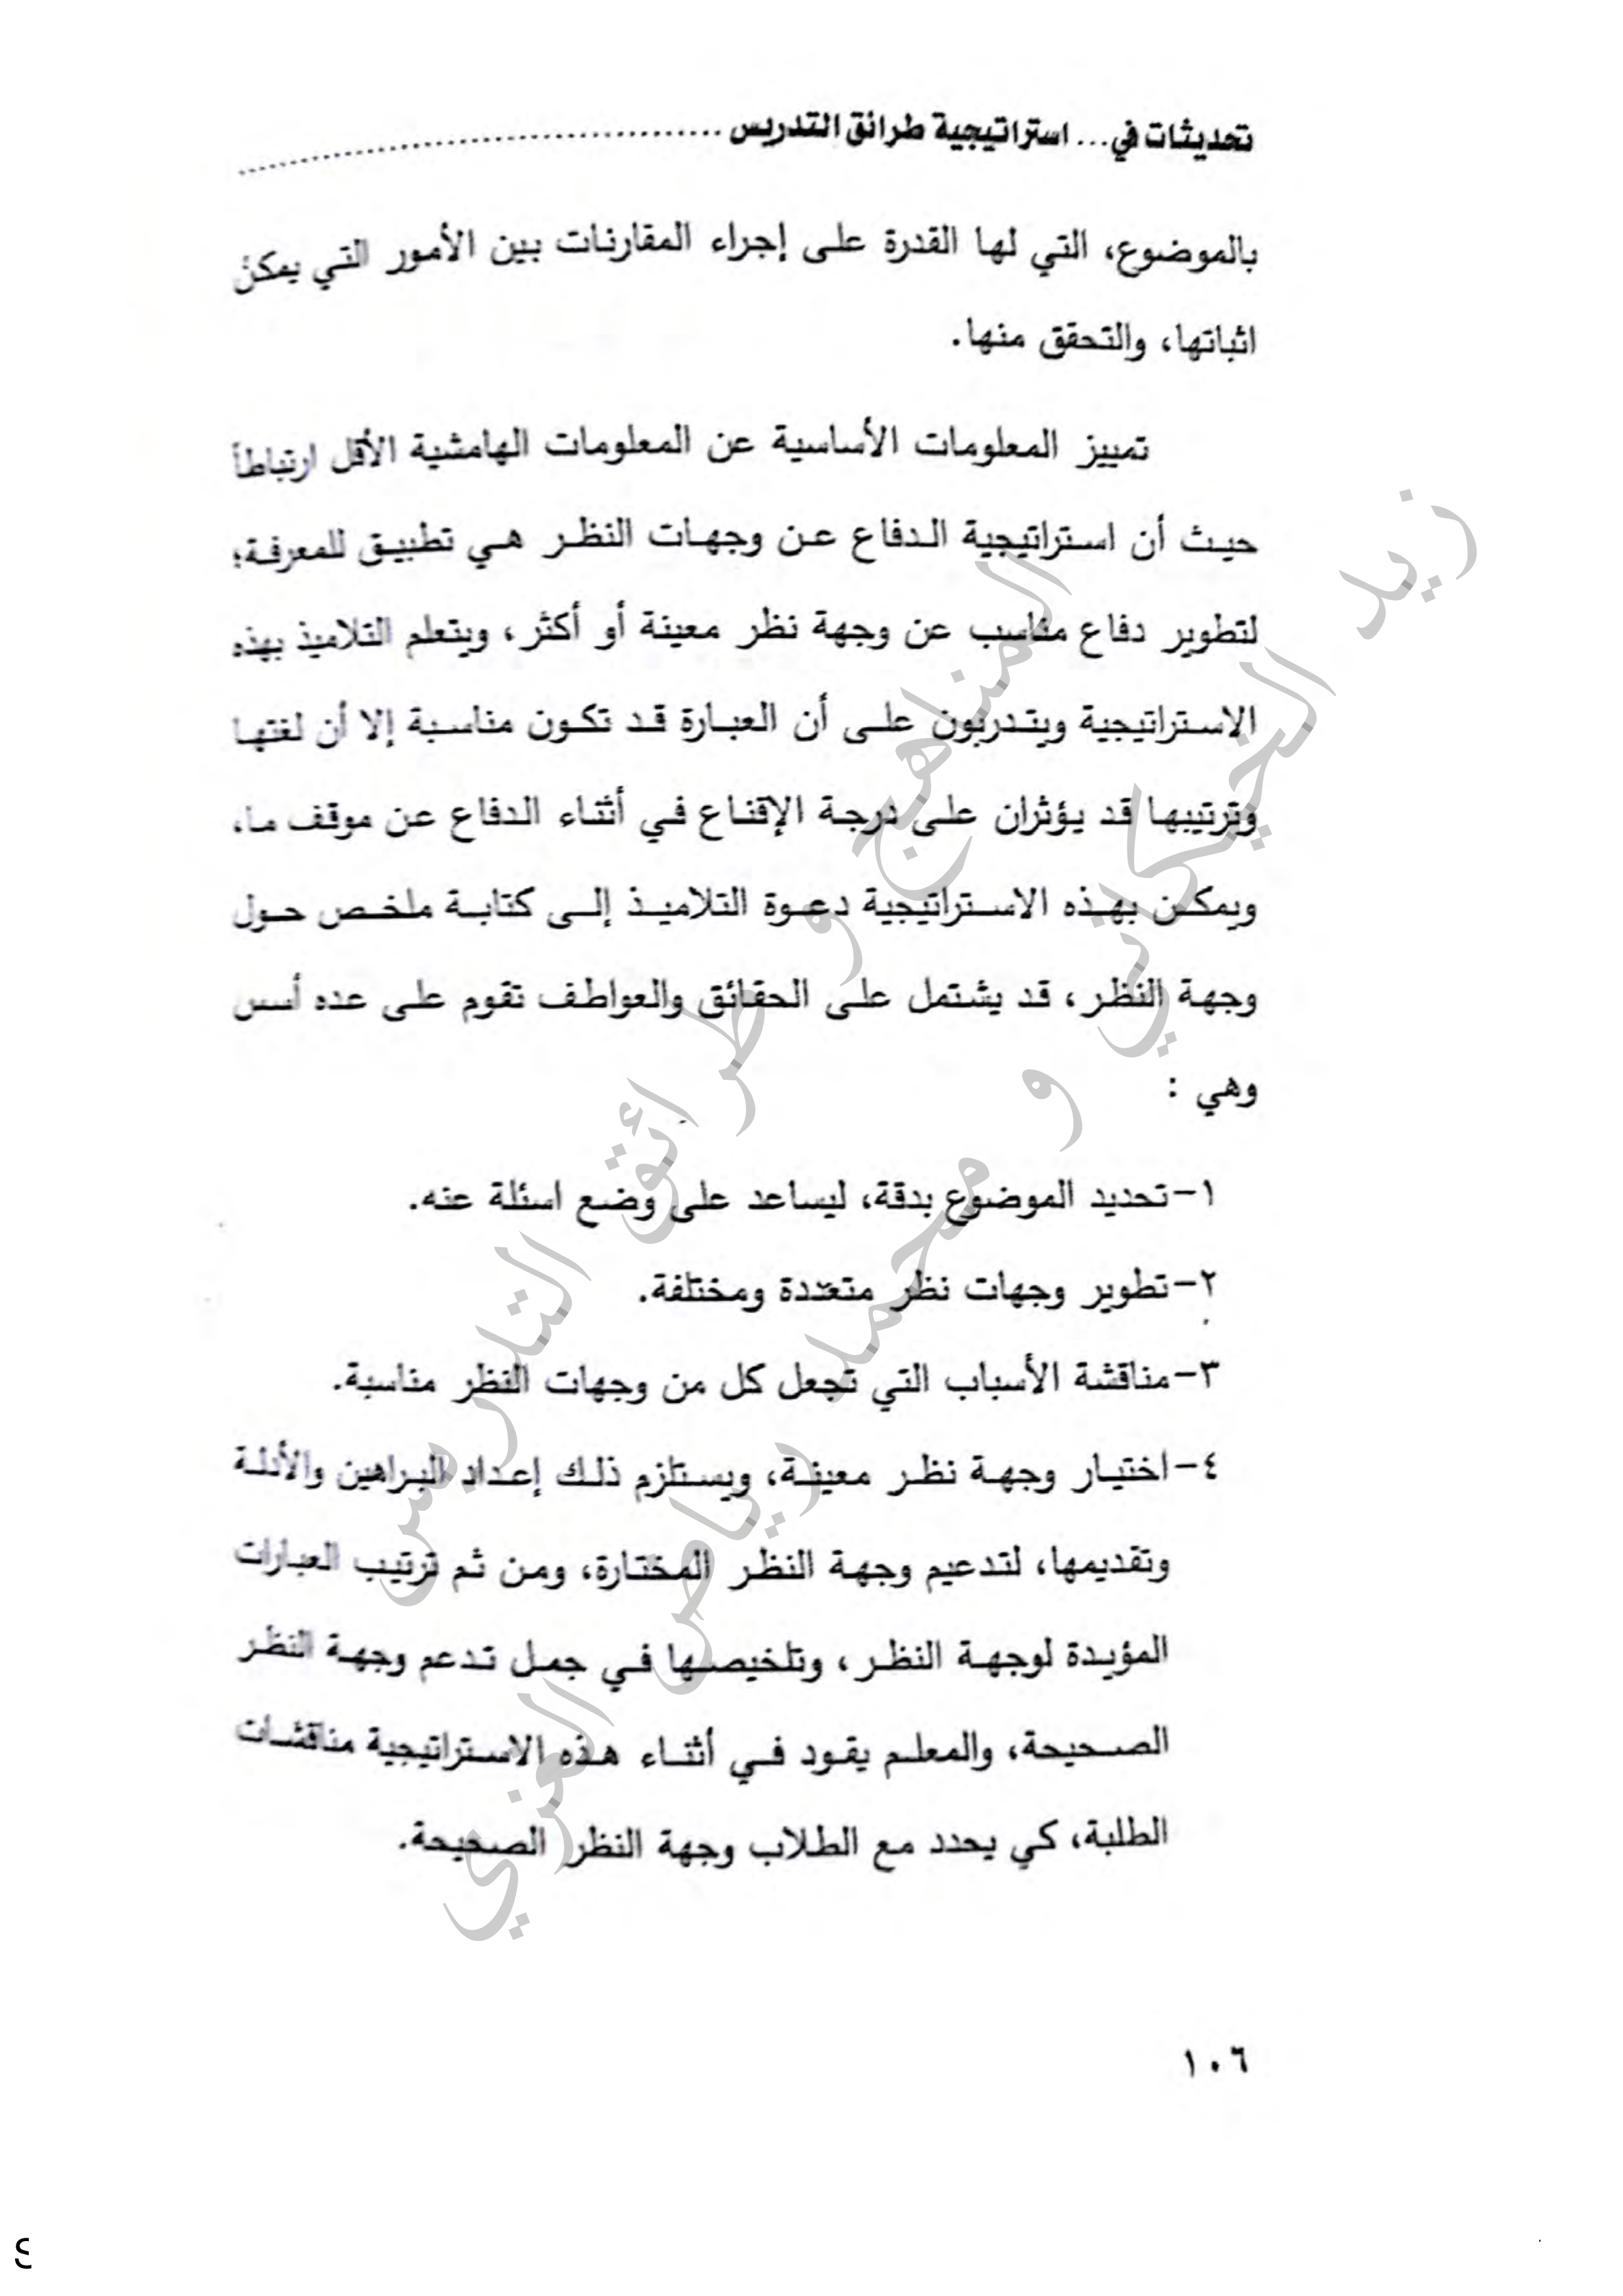 تحديثات في... استراتيجية طرائق التدريس
بالموضوع، التي لها القدرة على إجراء المقارنات بين الأمور التي يمكن
اثباتها، والتحقق منها.
تمييز المعلومات الأساسية عن المعلومات الهامشية الأقل ارتباطاً
حيث أن استراتيجية الدفاع عن وجهات النظر هي تطبيق للمعرفة؛
لتطوير دفاع مناسب عن وجهة نظر معينة أو أكثر، ويتعلم التلاميذ بهذه
الاستراتيجية ويتدربون على أن العبارة قد تكون مناسبة إلا أن لغتها
وترتيبها قد يؤثران على درجة الإقناع في أثناء الدفاع عن موقف ما،
ويمكن بهذه الاستراتيجية دعوة التلاميذ إلى كتابة ملخص حول
وجهة النظر، قد يشتمل على الحقائق والعواطف تقوم على عده أسس
وهي :
١-تحديد الموضوع بدقة، ليساعد على وضع اسئلة عنه.
٢-تطوير وجهات نظر متعددة ومختلفة.
٣-مناقشة الأسباب التي تجعل كل من وجهات النظر مناسبة.
٤-اختيار وجهة نظر معينة، ويستلزم ذلك إعداد البراهين والأدلة
وتقديمها، لتدعيم وجهة النظر المختارة، ومن ثم ترتيب العبارات
المؤيدة لوجهة النظر، وتلخيصها في جمل تدعم وجهة النظر
الصحيحة، والمعلم يقود في أثناء هذه الاستراتيجية مناقشات
الطلبة، كي يحدد مع الطلاب وجهة النظر الصحيحة.
١٠٦
المناهج و طرائق التدريس
زيد الخيكاني و محمد رياض العنزي